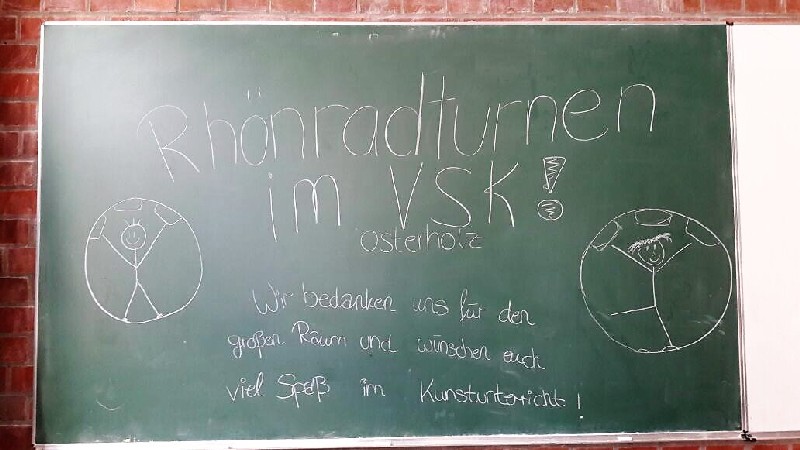 Rhönradturnen
im VSK!
osterholz
Wir bedanken uns für den
großen Raum und wünschen euch
viel Spaß im Kunstunterricht!